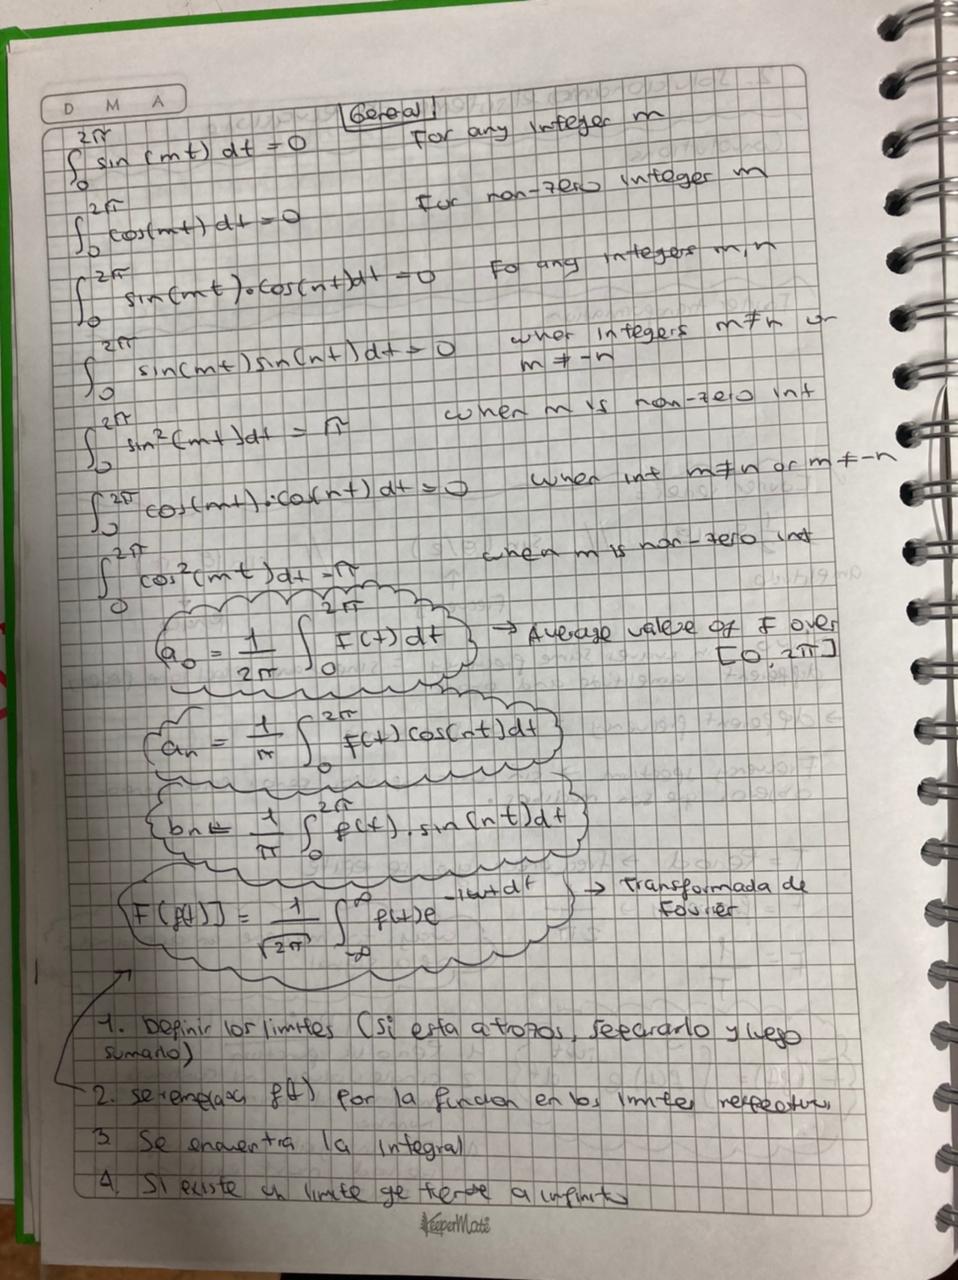 D M A
General
∫₀^2π sin(mt) dt = 0 For any integer m
∫₀^2π cos(mt) dt = 0 For non-zero integer m
∫₀^2π sin(mt)·cos(nt)dt = 0 For any integers m,n
∫₀^2π sin(mt)sin(nt)dt = 0 when integers m≠n or
m ≠ -n
∫₀^2π sin²(mt)dt = π when m is non-zero int
∫₀^2π cos(mt)·cos(nt)dt = 0 when int m≠n or m≠-n
∫₀^2π cos²(mt)dt = π when m is non-zero int
a₀ = 1/2π ∫₀^2π F(t)dt → Average value of F over
[0, 2π]
aₙ = 1/π ∫₀^2π F(t)cos(nt)dt
bₙ = 1/π ∫₀^2π f(t)·sin(nt)dt
F[f(t)] = 1/√2π ∫₋∞^∞ f(t)e^-iωt dt → Transformada de
Fourier
1. Definir los limites (si esta a trozos, separarlo y luego
sumarlo)
2. Se remplaza f(t) por la funcion en los limites respectivos
3. Se encuentra la integral
4. Si existe un limite que tiende a infinito
KeeperMate